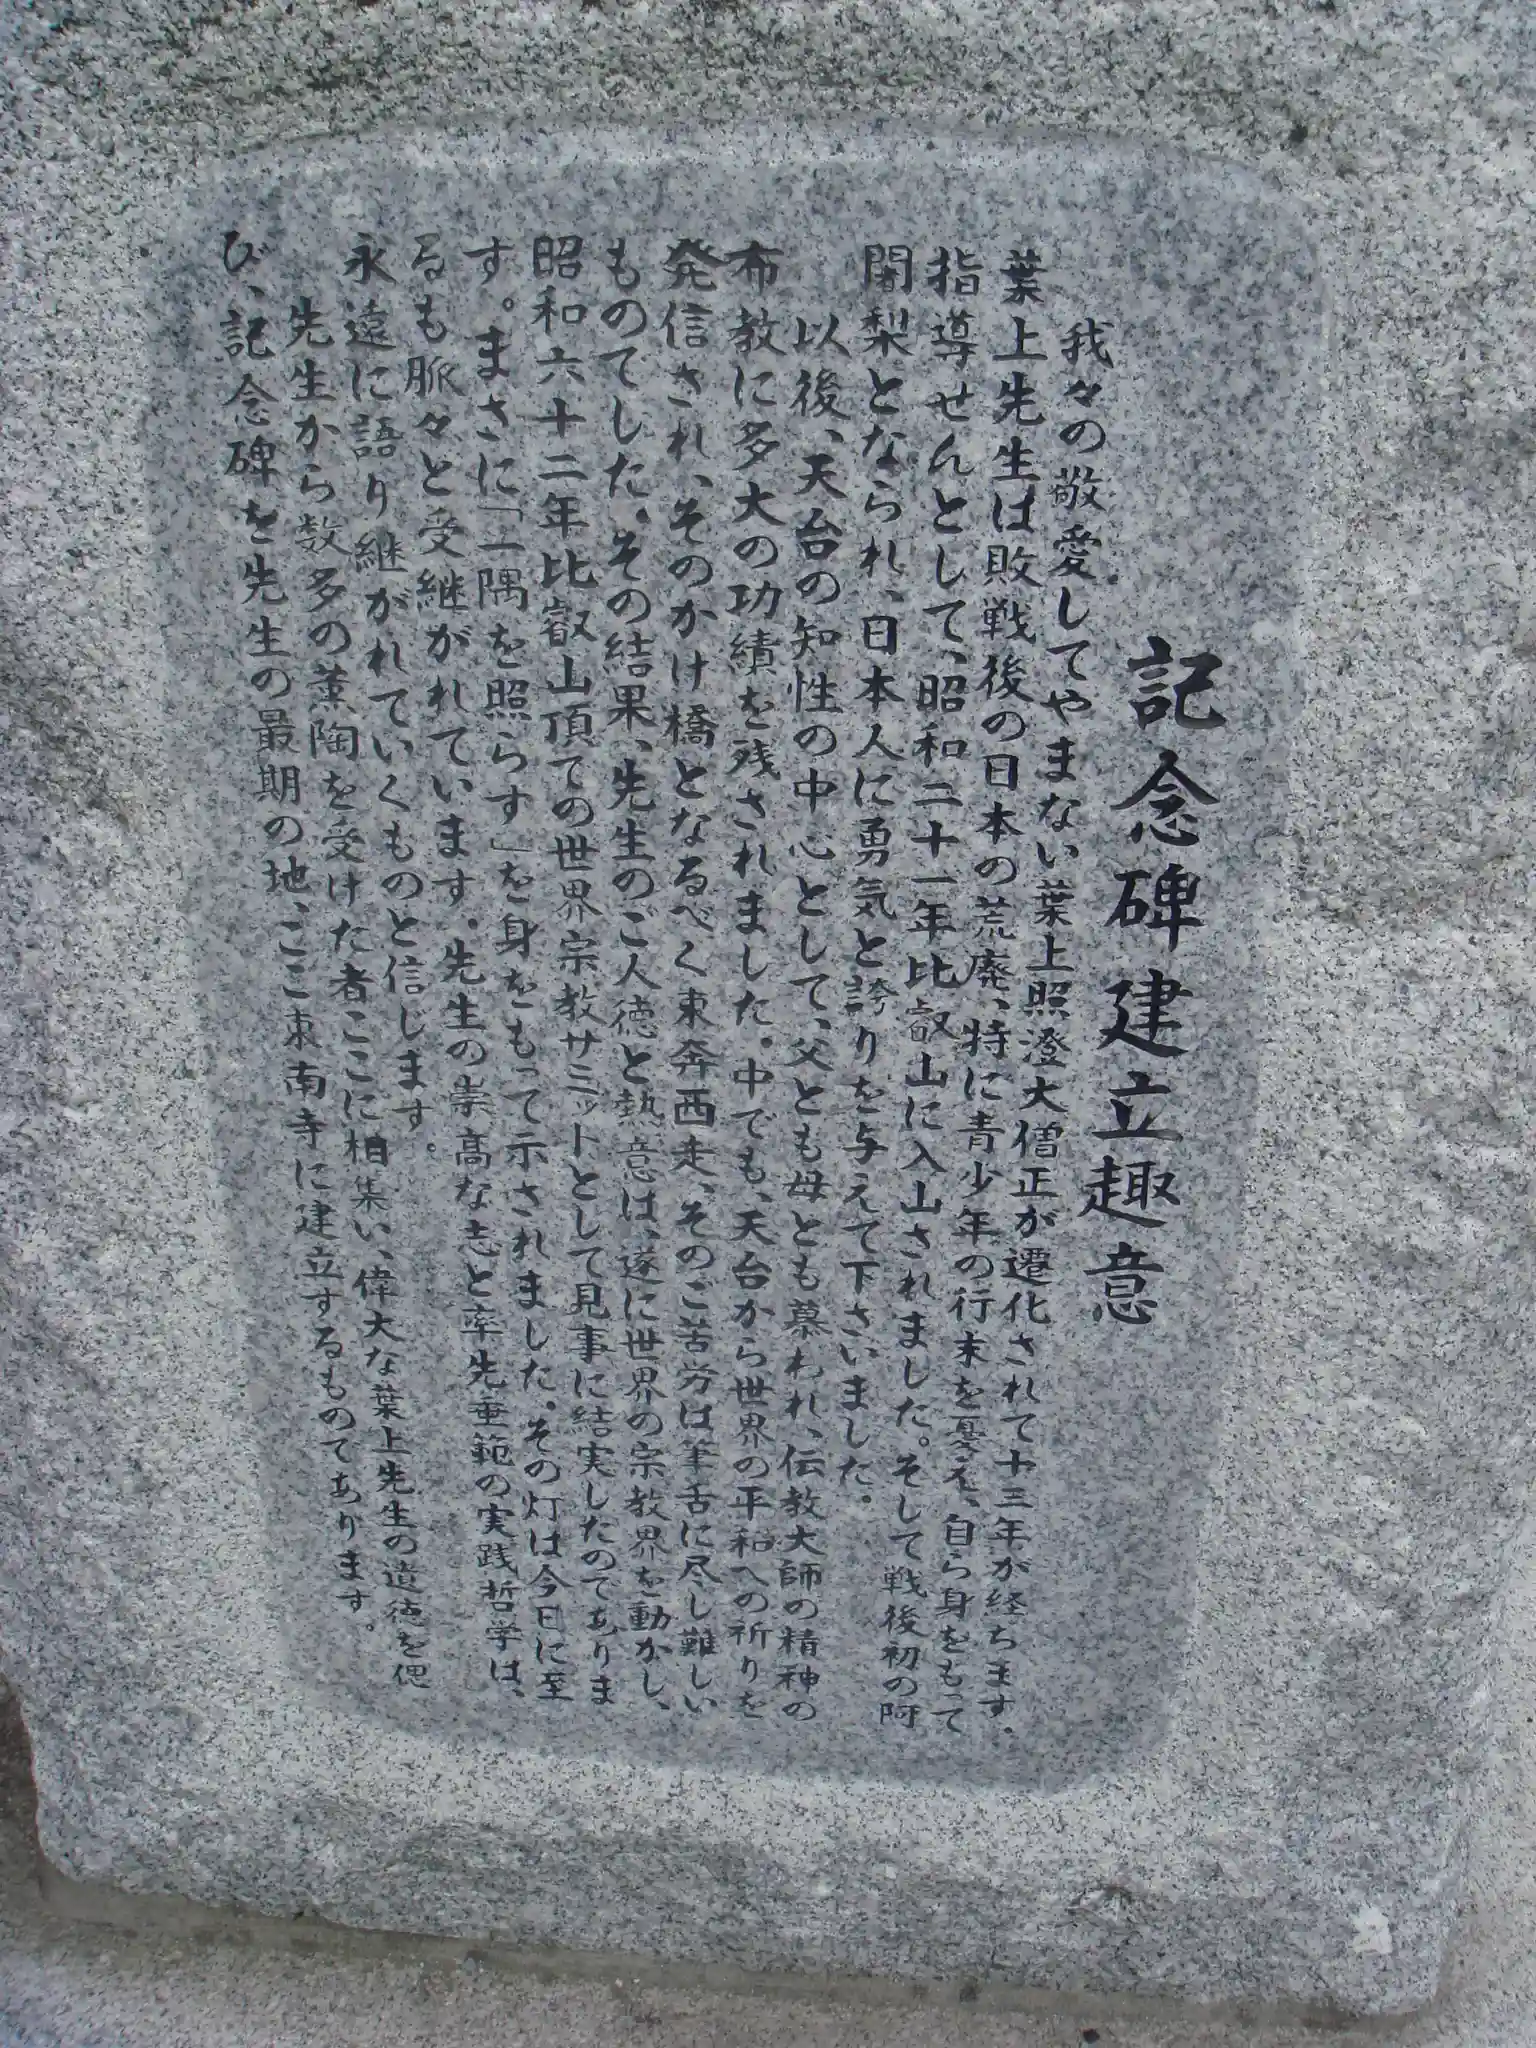 記念碑建立趣意
我々の敬愛してやまない葉上照澄大僧正が遷化されて十三年が経ちます。
葉上先生は敗戦後の日本の荒廃、特に青少年の行末を憂え、自ら身をもって
指導せんとして、昭和二十一年比叡山に入山されました。そして戦後初の阿
闍梨となられ、日本人に勇気と誇りを与えて下さいました。
以後、天台の知性の中心として、父とも母とも慕われ、伝教大師の精神の
布教に多大の功績を残されました。中でも、天台から世界の平和への祈りを
発信され、そのかけ橋となるべく東奔西走、そのご苦労は筆舌に尽し難しい
ものでした。その結果、先生のご人徳と熱意は、遂に世界の宗教界を動かし、
昭和六十二年比叡山頂での世界宗教サミットとして見事に結実したのでありま
す。まさに「一隅を照らす」を身をもって示されました。その灯は今日に至
るも脈々と受継がれています。先生の崇高な志と率先垂範の実践哲学は、
永遠に語り継がれていくものと信じます。
先生から数多の薫陶を受けた者ここに相集い、偉大な葉上先生の遺徳を偲
び、記念碑を先生の最期の地、ここ東南寺に建立するものであります。